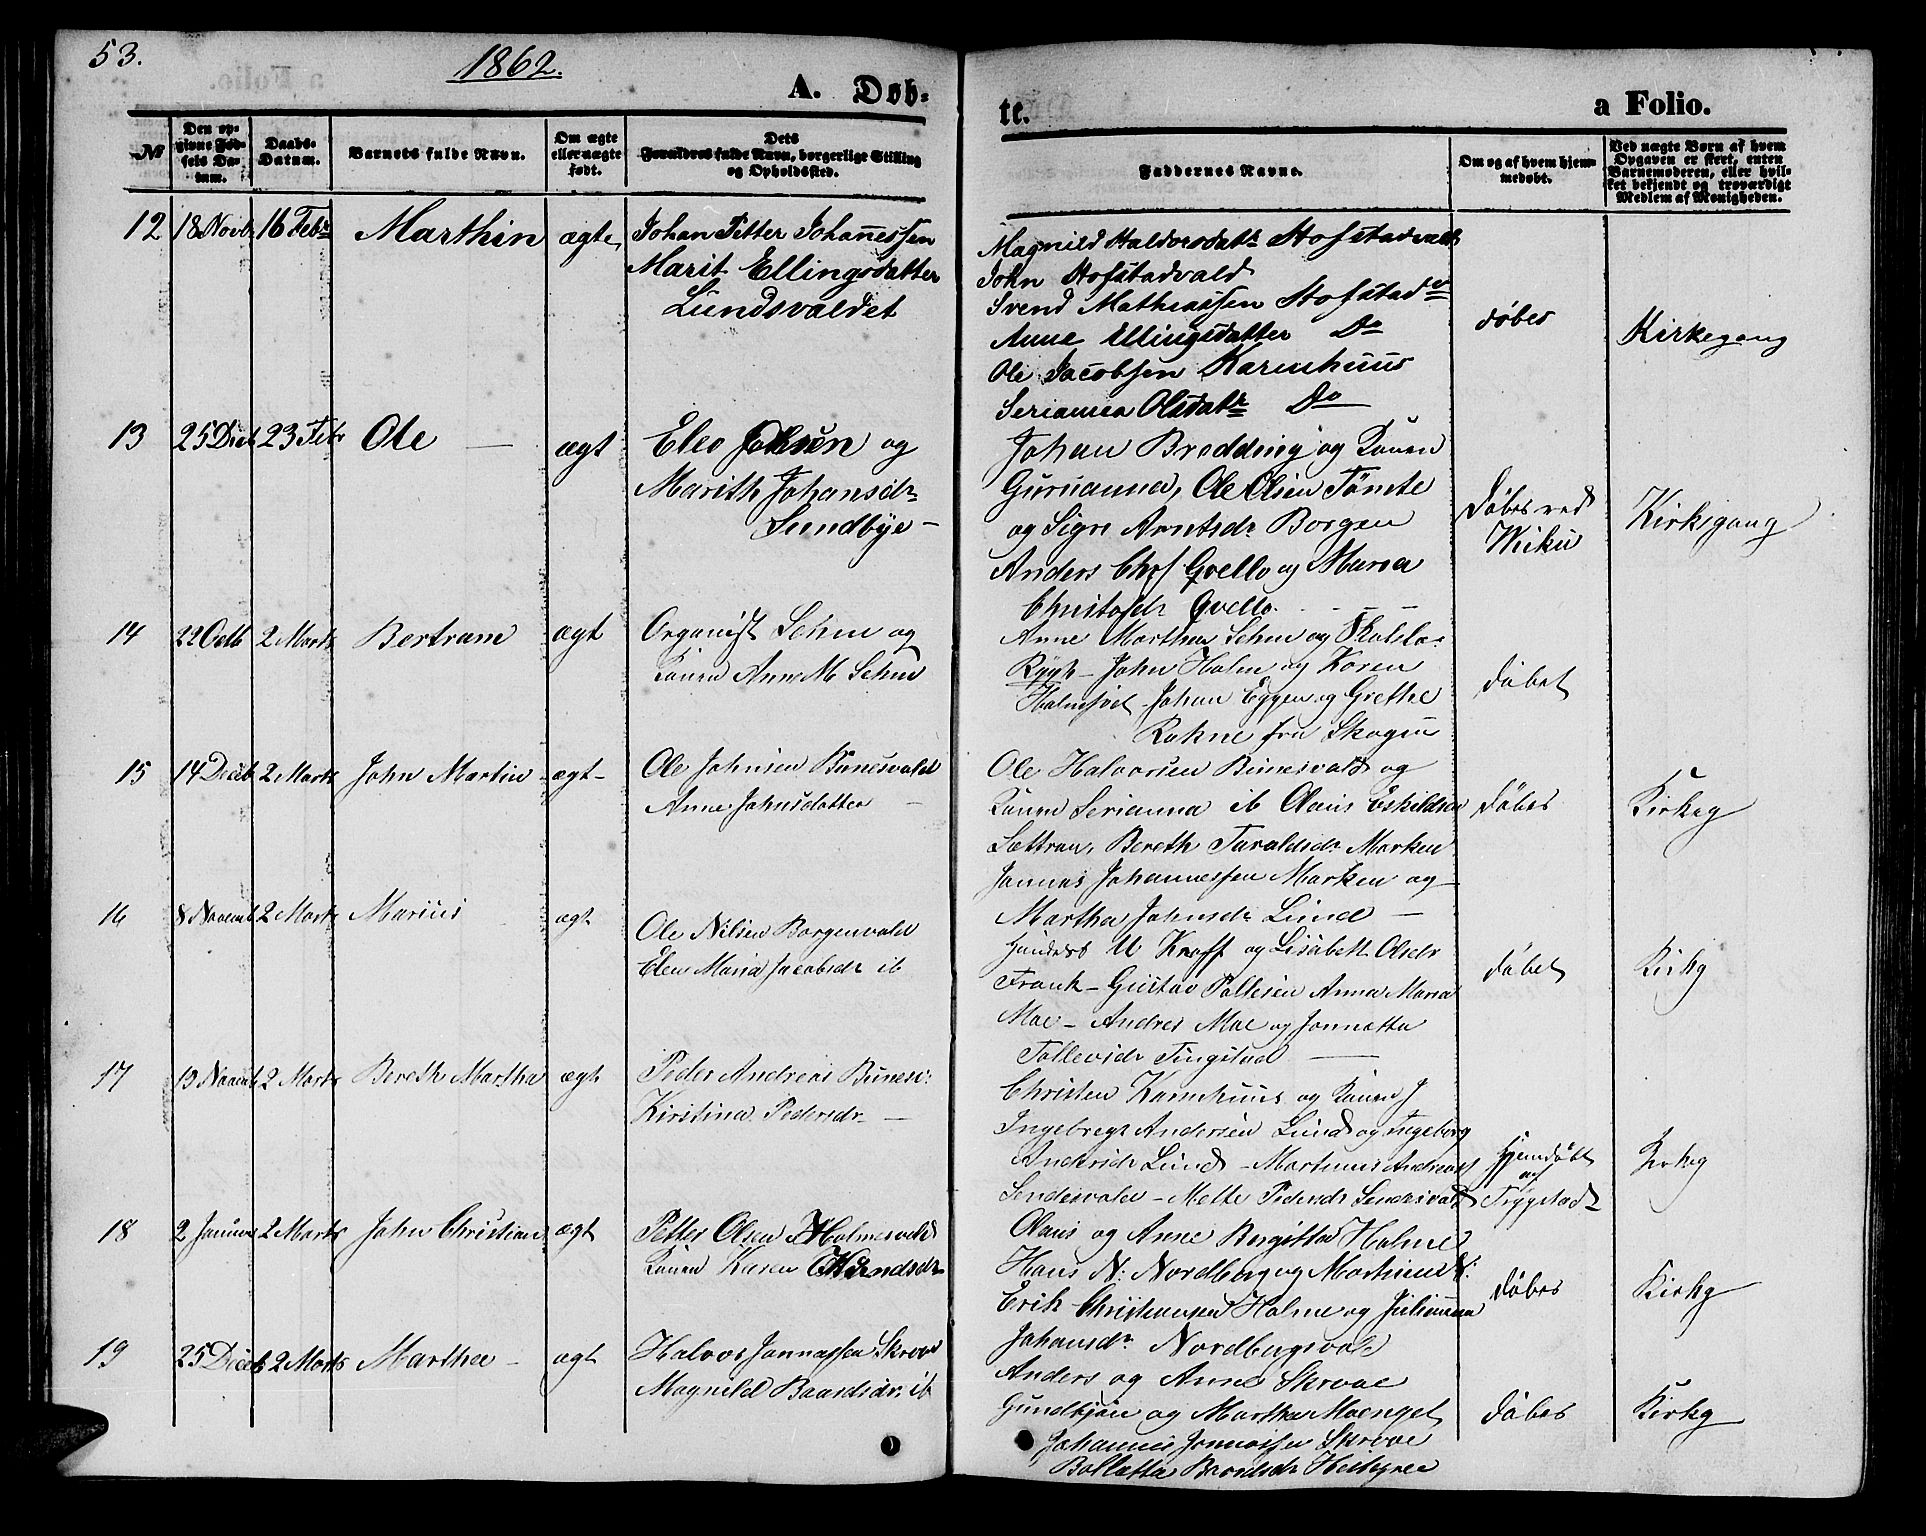 53.
1862.
A. Døb-
te.
a Folio.
No
Den op-
givne Fød-
sels Da-
tum.
Daabs-
Datum.
Barnets fulde Navn.
Om ægte
eller uægte
født.
Dets
Forældres fulde Navn, borgerlige Stilling
og Opholdssted.
Faddernes Navne.
Om og af hvem hjem-
medøbt.
Ved uægte Børn af hvem
Opgaven er skeet, enten
Barnemoderen, eller hvil-
ket bekjendt og troværdigt
Medlem af Menigheden.
12 18 Novb 16 Febr Marthin ægte
Johan Petter Johannessen
Marit Ellingsdatter
Lundsvaldet
Magnild Haldorsdatr Hofstadvald
John Hofstadvald
Svend Mathiassen Hofstad
Anne Ellingsdatter Do
Ole Jacobsen Karmhuus
Serianna Olsdatr Do
døbes
Kirkegang
13 25 Decb 23 Febr Ole ægt
Eleo Johsen og
Marith Johansdr
Sundbye
Johan Bredding og Konen
Guruanna, Ole Olsen Tømte
og Sigre Arntsdr Borgen
Anders Chrf Qvello og Maria
Christofdr Qvello
Døbes ved
Wiku
Kirkegang
14 22 Octb 2 Marts Bertram ægt
Organist Sehm og
Konen Anne M Sehm
Anne Marthea Sehm og Skolela:
Rygh - John Holm og Karen
Holmsvet Johan Eggen og Grethe
Rohne fra Skogn
døbet
15 14 Decb 2 Marts John Martin ægt
Ole Johnsen Bunesvald
Anne Johnsdatter
Ole Halvorsen Bunesvald og
Konen Serianna ib Olaus Eskildsen
Sættran, Bereth Taraldsdr Marken
Jonnas Johannessen Marken og
Martha Johnsdr Lund
døbes
Kirkeg
16 8 Novemb 2 Marts Marius ægt
Ole Nilsen Borgenvald
Elen Maria Jacobsdr ib
U Kraft og Lisabeth Olsdr
Frank - Gustav Pallesen Anna Maria
Moe - Andres Moe og Jonnetta
Tollevsdr Tingstad
døbet
Kirkg
17 13 Novemb 2 Marts Bereth Martha ægt
Peder Andreas Bunesv:
Kirstina Pedersdr
Christen Karmhuus og Konen J
Ingebregt Andersen Lund og Ingeborg
Andersdr Lund - Martinus Andreas
Sendesvald - Mette Pedersdr Sendesvald
Hjemdøbt
af
Trygstad
Kirkeg
18 2 Januar 2 Marts John Christian ægt
Petter Olsen Holmesvald
Konen Karen
Olaus og Anne Bergitta Holme
Hans N: Nordberg og Martinus N:
Erik Christiansen Holme og Julianna
Johansdr Nordbergsvald
døbes
Kirkg
19 25 Decb 2 Marts Marthea ægt
Halvor Jonnassen Skrove
Magnild Baardsdr ib
Anders og Anne Skrove
Gundbjør og Martha Moenget
Johannes Jonnassen Skrove
Bolletta
døbes
Kirkg